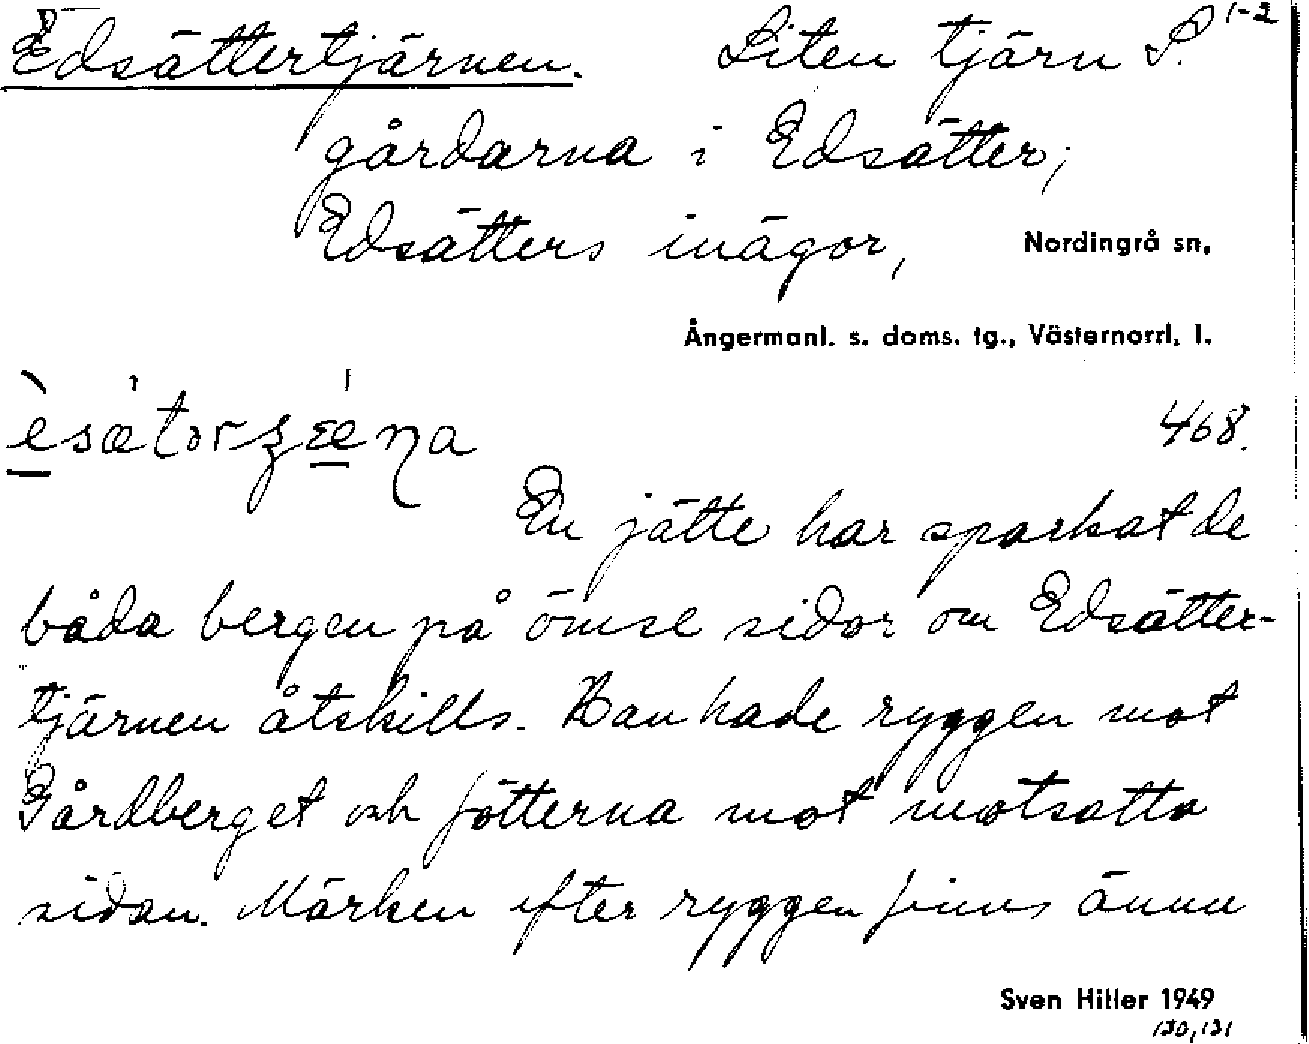 Edsättertjärnen. Liten tjärn S. 1-2
gårdarna i Edsätter;
Edsätters inägor, Nordingrå sn,
Ångermanl. s. doms. tg., Västernorrl. l.
468.
En jätte har sparkat de
båda bergen på ömse sidor om Edsätter-
tjärnen åtskills. Han hade ryggen mot
Gårdberget och fötterna mot motsatta
sidan. Märken efter ryggen finns ännu
Sven Hiller 1949
130,131